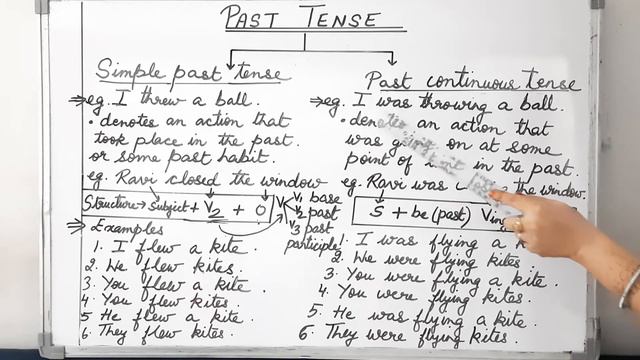 PAST TENSE
Simple past tense
⇒ eg. I threw a ball.
• denotes an action that
took place in the past.
or some past habit.
eg. Ravi closed the window
Structure → Subject + V2 + O
V1 base
V2 past
V3 past
participle
⇒ Examples
1. I flew a kite.
2. We flew kites.
3. You flew a kite.
4. You flew kites.
5. He flew a kite.
6. They flew kites.
Past continuous tense
⇒ eg. I was throwing a ball.
• denotes an action that
was on at some
point of in the past.
eg. Ravi was the window.
S + be (past) Ving
1. I was flying a
2. We were flying kites
3. You were flying a kite.
4. You were flying kites.
5. He was flying a kite.
6. They were flying kites.